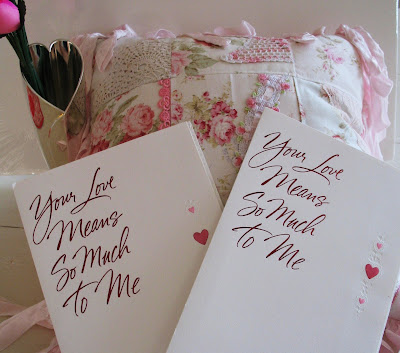 Your Love
Means
So Much
to Me
Your Love
Means
So Much
to Me